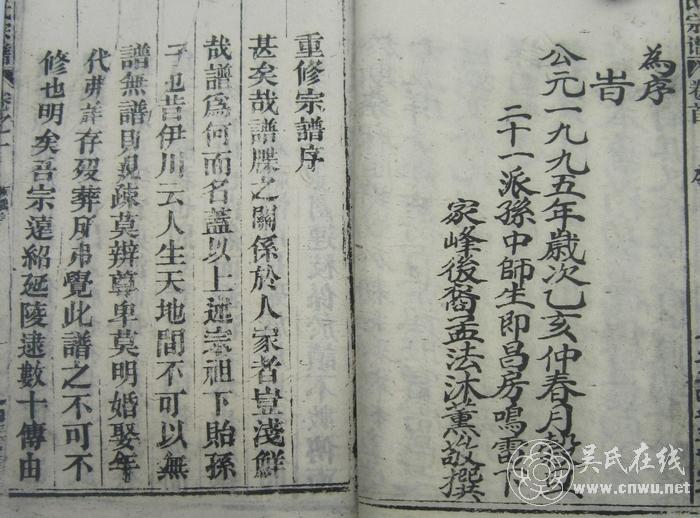 為序
旹
公元一九九五年歲次乙亥仲春月
二十一派孫中師生即昌房鳴
家峰後裔孟法沐薰敬撰
重修宗譜序
甚矣哉譜牒之關係於人家者豈淺鮮
哉譜爲何而名蓋以上述宗祖下貽孫
子也昔伊川云人生天地間不可以無
譜無譜則親疎莫辨尊卑莫明婚娶年
代弗詳存歿葬所弗覺此譜之不可不
修也明矣吾宗遠紹延陵逮數十傳由
宗譜
吴氏在线
www.cnwu.net